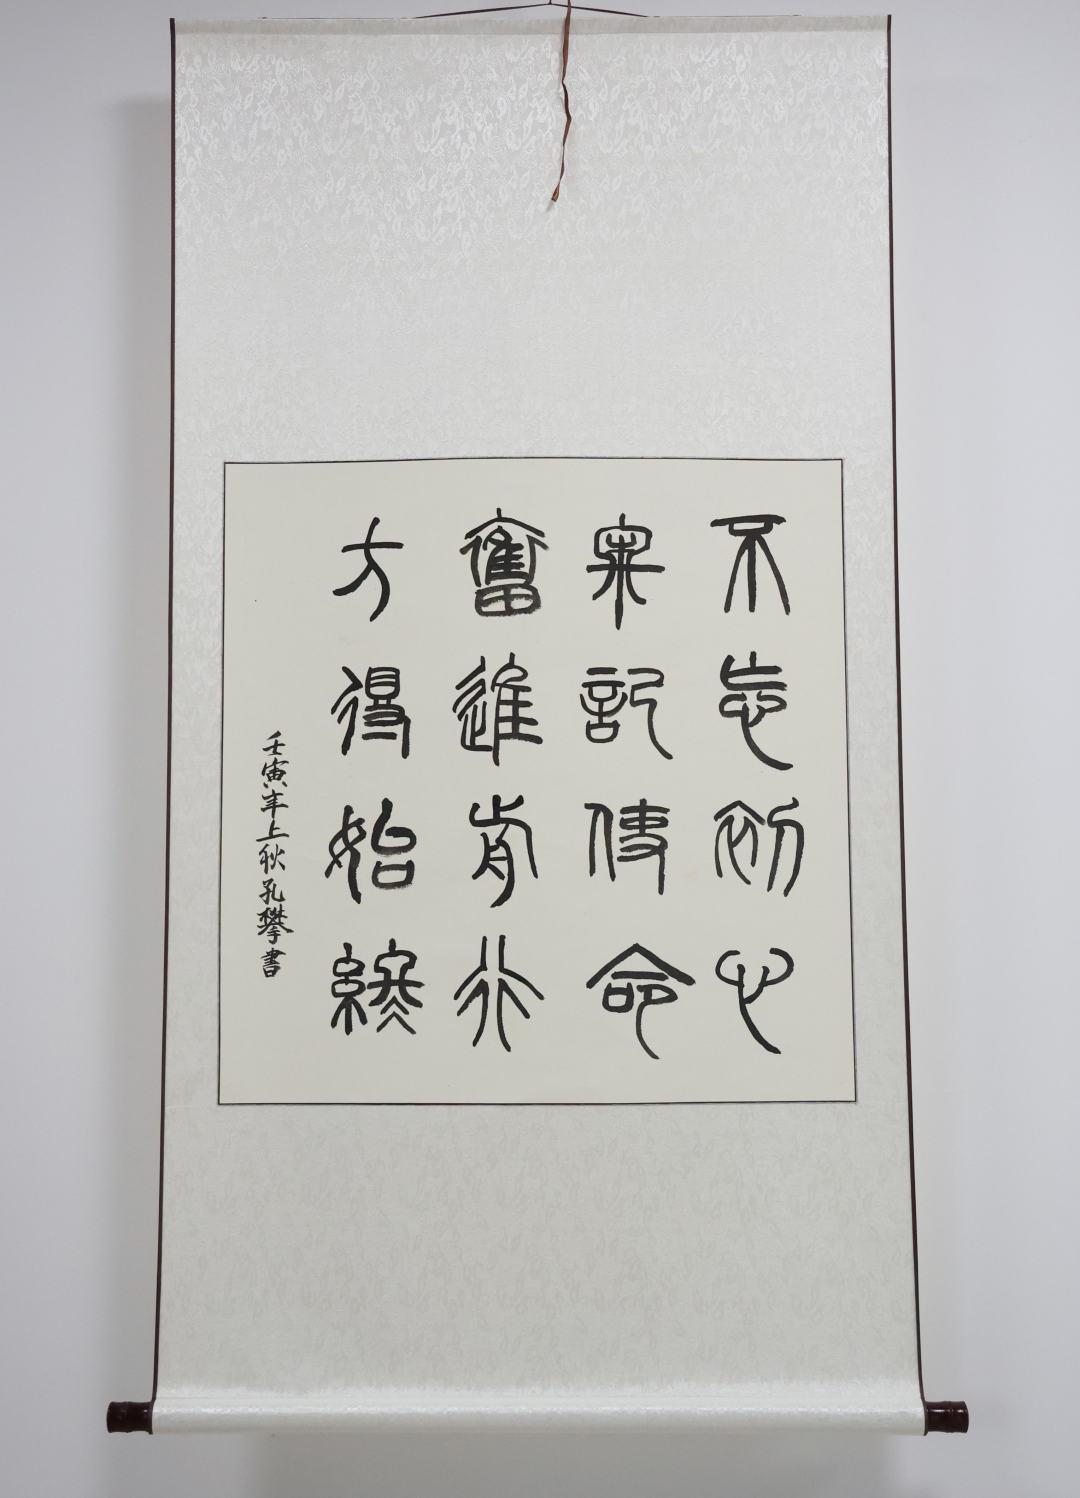 不忘初心
牢記使命
奮進前行
方得始終
壬寅年上秋孔攀書